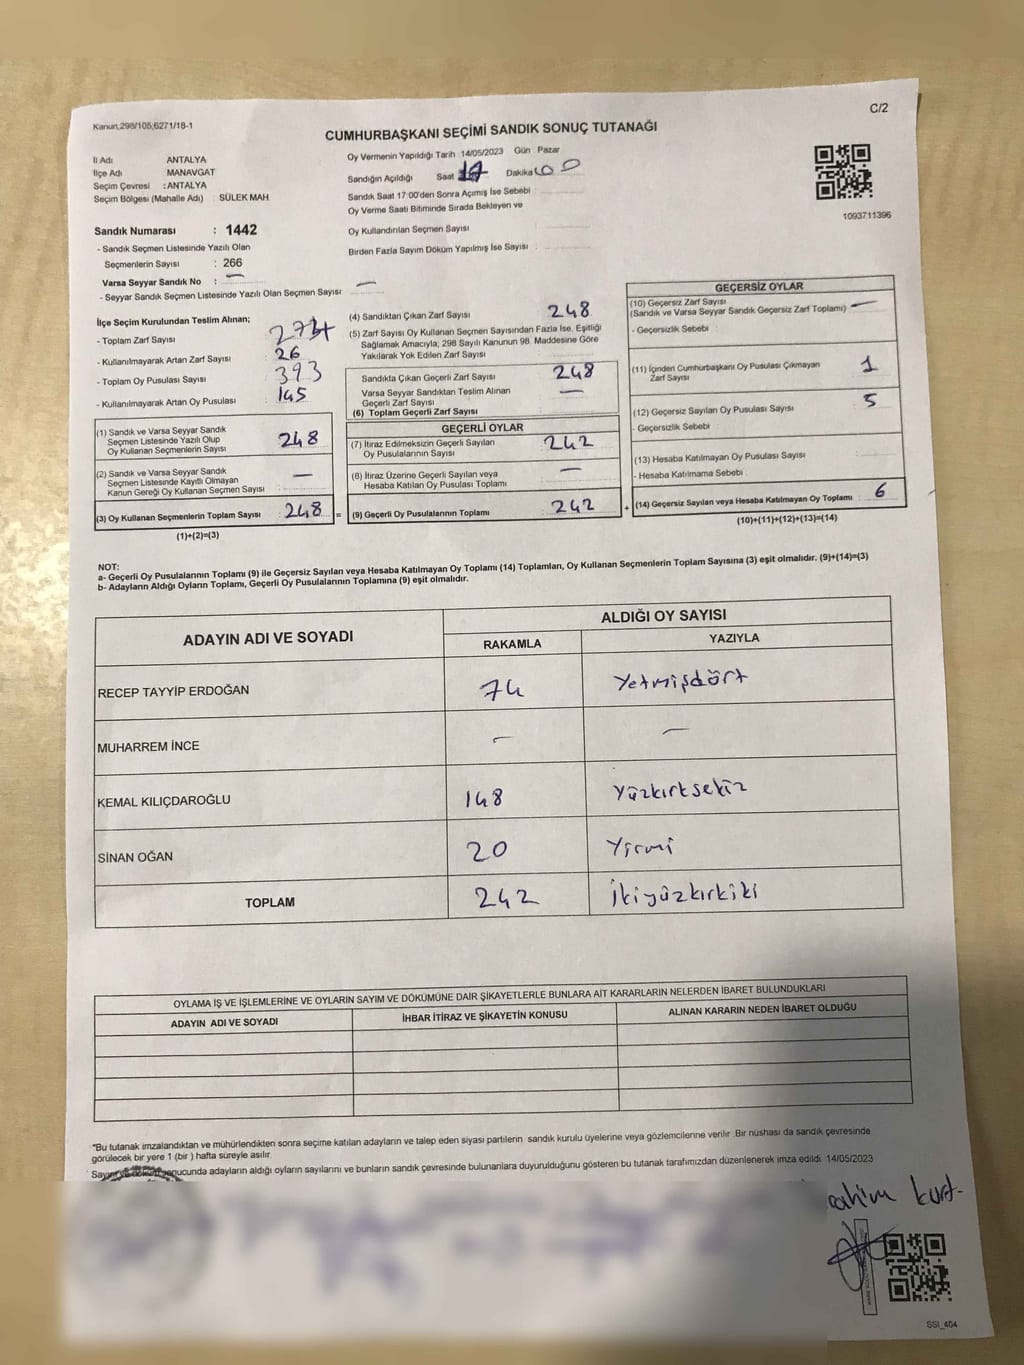 C/2
Kanun,298/105,6271/18-1
CUMHURBAŞKANI SEÇİMİ SANDIK SONUÇ TUTANAĞI
İl Adı ANTALYA
İlçe Adı MANAVGAT
Seçim Çevresi : ANTALYA
Seçim Bölgesi (Mahalle Adı) : SÜLEK MAH
Oy Vermenin Yapıldığı Tarih :14/05/2023 Gün : Pazar
Sandığın Açıldığı Saat 17 Dakika 00
Sandık Saat 17:00'den Sonra Açımış İse Sebebi :
Oy Verme Saati Bitiminde Sırada Bekleyen ve
Oy Kullandırılan Seçmen Sayısı :
Birden Fazla Sayım Döküm Yapılmış İse Sayısı :
1093711396
Sandık Numarası : 1442
- Sandık Seçmen Listesinde Yazılı Olan
Seçmenlerin Sayısı : 266
Varsa Seyyar Sandık No : —
- Seyyar Sandık Seçmen Listesinde Yazılı Olan Seçmen Sayısı : —
İlçe Seçim Kurulundan Teslim Alınan;
- Toplam Zarf Sayısı
- Kullanılmayarak Artan Zarf Sayısı 26
- Toplam Oy Pusulası Sayısı 393
- Kullanılmayarak Artan Oy Pusulası 145
(1) Sandık ve Varsa Seyyar Sandık
Seçmen Listesinde Yazılı Olup
Oy Kullanan Seçmenlerin Sayısı 248
(2) Sandık ve Varsa Seyyar Sandık
Seçmen Listesinde Kayıtlı Olmayan
Kanun Gereği Oy Kullanan Seçmen Sayısı —
(3) Oy Kullanan Seçmenlerin Toplam Sayısı 248 =
(1)+(2)=(3)
(4) Sandıktan Çıkan Zarf Sayısı 248
(5) Zarf Sayısı Oy Kullanan Seçmen Sayısından Fazla İse, Eşitliği
Sağlamak Amacıyla, 298 Sayılı Kanunun 98. Maddesine Göre
Yakılarak Yok Edilen Zarf Sayısı
Sandıkta Çıkan Geçerli Zarf Sayısı 248
Varsa Seyyar Sandıktan Teslim Alınan
Geçerli Zarf Sayısı —
(6) Toplam Geçerli Zarf Sayısı
GEÇERLİ OYLAR
(7) İtiraz Edilmeksizin Geçerli Sayılan
Oy Pusulalarının Sayısı 242
(8) İtiraz Üzerine Geçerli Sayılan veya
Hesaba Katılan Oy Pusulası Toplamı —
(9) Geçerli Oy Pusulalarının Toplamı 242 +
GEÇERSİZ OYLAR
(10) Geçersiz Zarf Sayısı
(Sandık ve Varsa Seyyar Sandık Geçersiz Zarf Toplamı) —
- Geçersizlik Sebebi :
(11) İçinden Cumhurbaşkanı Oy Pusulası Çıkmayan
Zarf Sayısı 1
(12) Geçersiz Sayılan Oy Pusulası Sayısı 5
- Geçersizlik Sebebi :
(13) Hesaba Katılmayan Oy Pusulası Sayısı
- Hesaba Katılmama Sebebi :
(14) Geçersiz Sayılan veya Hesaba Katılmayan Oy Toplamı 6
(10)+(11)+(12)+(13)=(14)
NOT:
a- Geçerli Oy Pusulalarının Toplamı (9) ile Geçersiz Sayılan veya Hesaba Katılmayan Oy Toplamı (14) Toplamları, Oy Kullanan Seçmenlerin Toplam Sayısına (3) eşit olmalıdır. (9)+(14)=(3)
b- Adayların Aldığı Oyların Toplamı, Geçerli Oy Pusulalarının Toplamına (9) eşit olmalıdır.
ADAYIN ADI VE SOYADI ALDIĞI OY SAYISI
RAKAMLA YAZIYLA
RECEP TAYYİP ERDOĞAN 74 Yetmişdört
MUHARREM İNCE — —
KEMAL KILIÇDAROĞLU 148 Yüzkırksekiz
SİNAN OĞAN 20 Yirmi
TOPLAM 242 İkiyüzkırkiki
OYLAMA İŞ VE İŞLEMLERİNE VE OYLARIN SAYIM VE DÖKÜMÜNE DAİR ŞİKAYETLERLE BUNLARA AİT KARARLARIN NELERDEN İBARET BULUNDUKLARI
ADAYIN ADI VE SOYADI İHBAR İTİRAZ VE ŞİKAYETİN KONUSU ALINAN KARARIN NEDEN İBARET OLDUĞU
"Bu tutanak imzalandıktan ve mühürlendikten sonra seçime katılan adayların ve talep eden siyasi partilerin sandık kurulu üyelerine veya gözlemcilerine verilir. Bir nüshası da sandık çevresinde
görülecek bir yere 1 (bir ) hafta süreyle asılır.
Sayım ve döküm sonucunda adayların aldığı oyların sayılarını ve bunların sandık çevresinde bulunanlara duyurulduğunu gösteren bu tutanak tarafımızdan düzenlenerek imza edildi. 14/05/2023
rahim kurt-
SSI_404